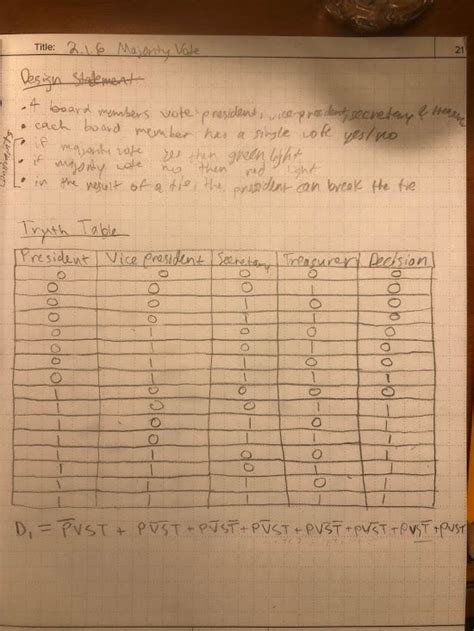 Title: 2.1.6 Majority Vote
21
Design Statement
• 4 board members vote: president, vice president, secretary &
• each board member has a single vote yes/no
• if majority vote yes then green light
• if majority vote no then red light
• in the result of a tie, the president can break the tie
constraints
Truth Table
President Vice president Secretary Treasurer Decision
0 0 0 0 0
0 0 0 1 0
0 0 1 0 0
0 0 1 1 0
0 1 0 0 0
0 1 0 1 0
0 1 1 0 0
0 1 1 1 1
1 0 0 0 0
1 0 0 1 1
1 0 1 0 1
1 0 1 1 1
1 1 0 0 1
1 1 0 1 1
1 1 1 0 1
1 1 1 1 1
D₁ = P̅VST + PV̅S̅T + PV̅ST̅ + PV̅ST + PVS̅T̅ + PVS̅T + PVST̅ + PVST